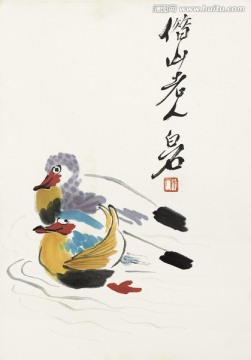 借山老人白石
www.huitu.com